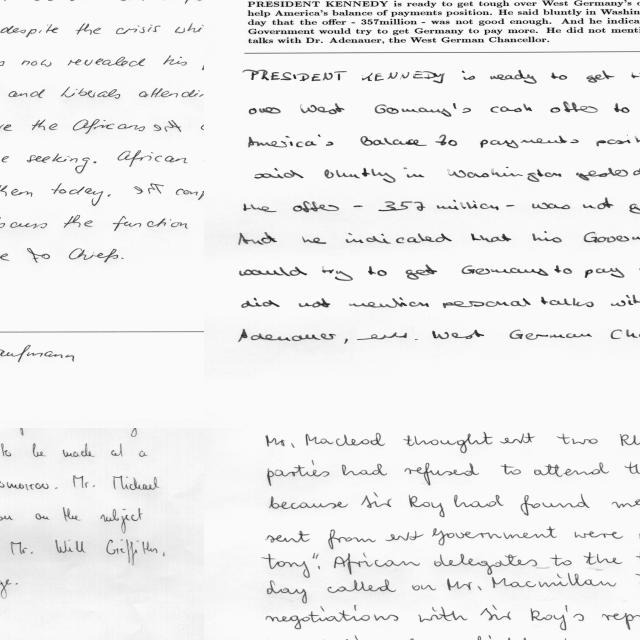 despite the crisis whi
now revealed his
and Liberals attendi
the Africans
seeking. African
today.
the function
to Chiefs.
aufmann
PRESIDENT KENNEDY is ready to get tough over West Germany's
help America's balance of payments position. He said bluntly in Washin
day that the offer - 357million - was not good enough. And he indica
Government would try to get Germany to pay more. He did not menti
talks with Dr. Adenauer, the West German Chancellor.
PRESIDENT KENNEDY is ready to get
over West Germany's cash offer to
America's Balace to payments posit
said bluntly in Washington yesterd
the offer - 357 million - was not g
And he indicated that his Govern
would try to get Germans to pay
did not mention personal talks wit
Adenauer, West German Cha
to be made at a
omorrow. Mr. Michael
on the subject
Mr. Will Griffiths,
ge.
Mr. Macleod thought two Rh
parties had refused to attend th
because Sir Roy had found me
sent from Government were
tony". African delegates to the
day called on Mr. Macmillan
negotiations with Sir Roy's repr